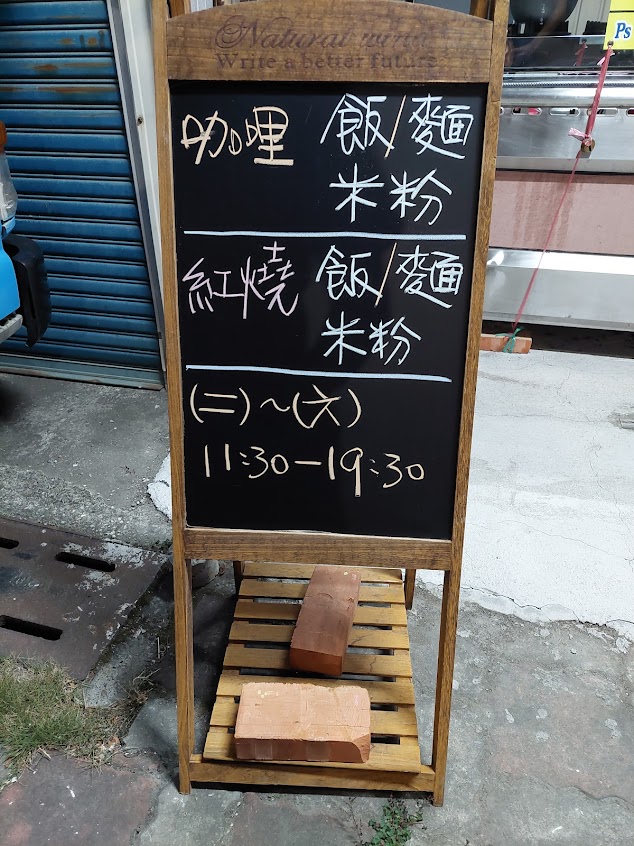 Natural wind
Write a better future
咖哩 飯/麵
米粉
紅燒 飯/麵
米粉
(二)~(六)
11:30-19:30
Ps